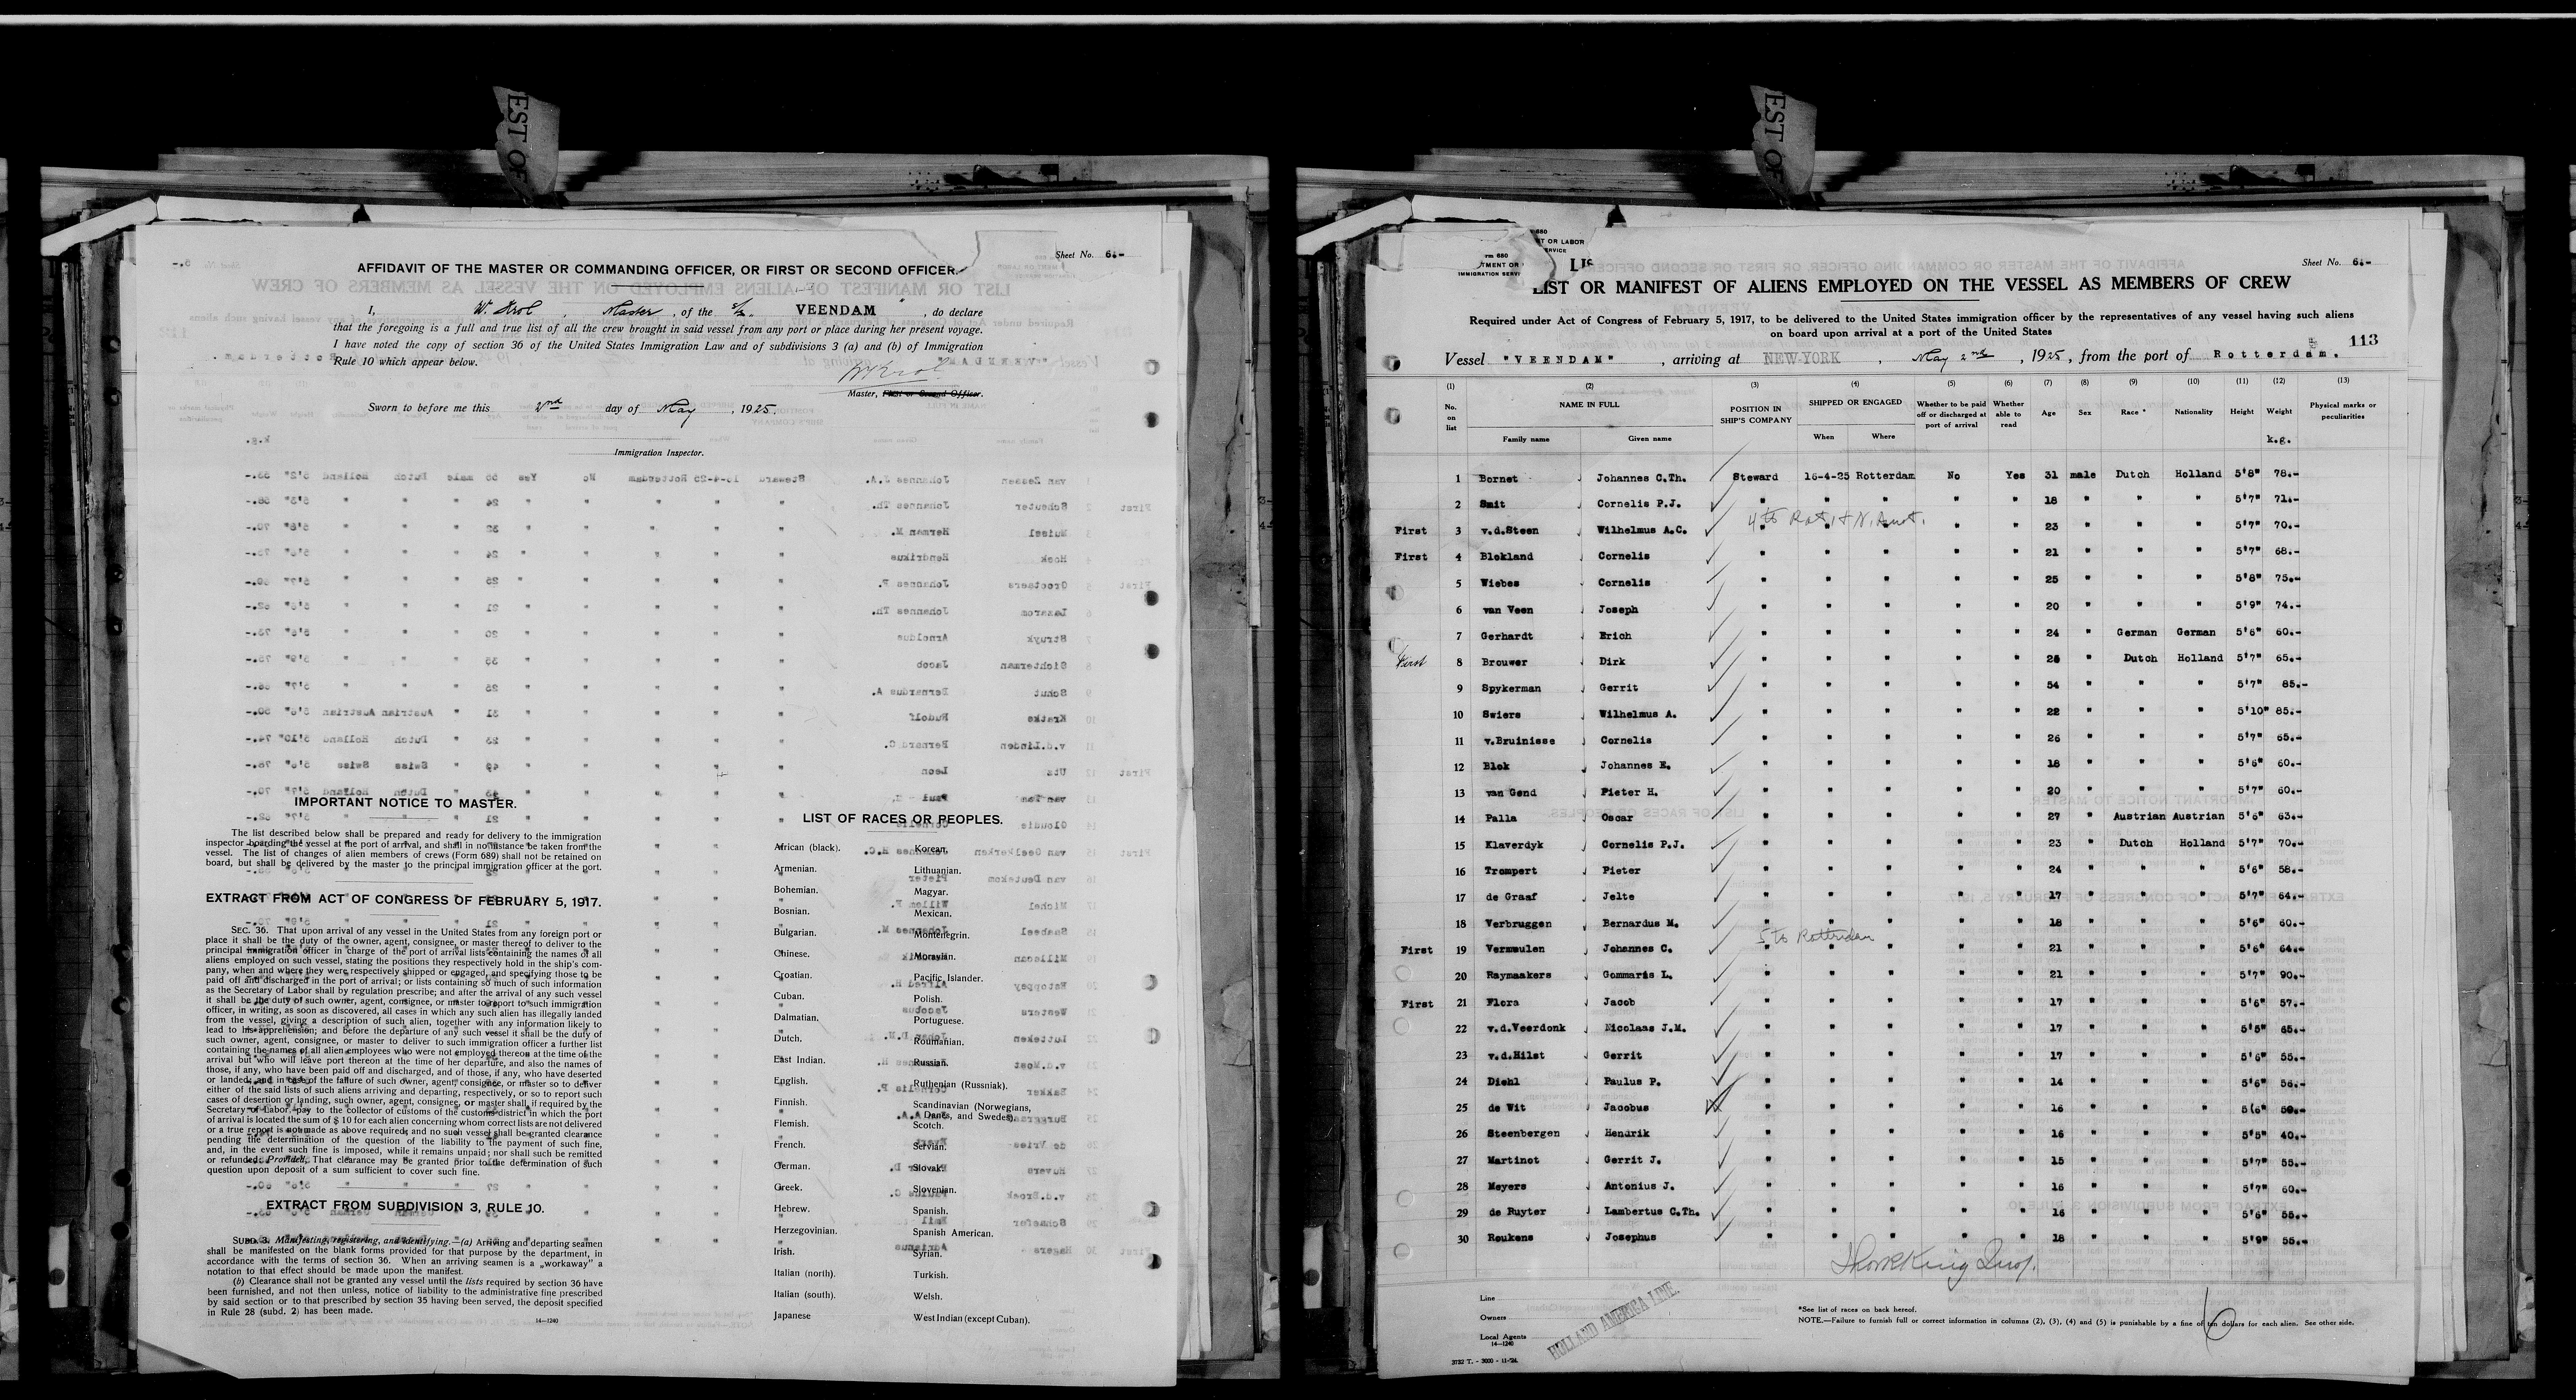 EST OF
Sheet No. 6.-
AFFIDAVIT OF THE MASTER OR COMMANDING OFFICER, OR FIRST OR SECOND OFFICER.
I, W. Krol, Master, of the S/S. VEENDAM, do declare
that the foregoing is a full and true list of all the crew brought in said vessel from any port or place during her present voyage.
I have noted the copy of section 36 of the United States Immigration Law and of subdivisions 3 (a) and (b) of Immigration
Rule 10 which appear below.
W Krol
Master, First or Second Officer.
Sworn to before me this 2nd day of May, 1925.
Immigration Inspector.
IMPORTANT NOTICE TO MASTER.
The list described below shall be prepared and ready for delivery to the immigration
inspector boarding the vessel at the port of arrival, and shall in no instance be taken from the
vessel. The list of changes of alien members of crews (Form 689) shall not be retained on
board, but shall be delivered by the master to the principal immigration officer at the port.
EXTRACT FROM ACT OF CONGRESS OF FEBRUARY 5, 1917.
SEC. 36. That upon arrival of any vessel in the United States from any foreign port or
place it shall be the duty of the owner, agent, consignee, or master thereof to deliver to the
principal immigration officer in charge of the port of arrival lists containing the names of all
aliens employed on such vessel, stating the positions they respectively hold in the ship's com-
pany, when and where they were respectively shipped or engaged, and specifying those to be
paid off and discharged in the port of arrival; or lists containing so much of such information
as the Secretary of Labor shall by regulation prescribe; and after the arrival of any such vessel
it shall be the duty of such owner, agent, consignee, or master to report to such immigration
officer, in writing, as soon as discovered, all cases in which any such alien has illegally landed
from the vessel, giving a description of such alien, together with any information likely to
lead to his apprehension; and before the departure of any such vessel it shall be the duty of
such owner, agent, consignee, or master to deliver to such immigration officer a further list
containing the names of all alien employees who were not employed thereon at the time of the
arrival but who will leave port thereon at the time of her departure, and also the names of
those, if any, who have been paid off and discharged, and of those, if any, who have deserted
or landed; and in case of the failure of such owner, agent, consignee, or master so to deliver
either of the said lists of such aliens arriving and departing, respectively, or so to report such
cases of desertion or landing, such owner, agent, consignee, or master shall, if required by the
Secretary of Labor, pay to the collector of customs of the customs district in which the port
of arrival is located the sum of $ 10 for each alien concerning whom correct lists are not delivered
or a true report is not made as above required; and no such vessel shall be granted clearance
pending the determination of the question of the liability to the payment of such fine,
and, in the event such fine is imposed, while it remains unpaid; nor shall such be remitted
or refunded: Provided, That clearance may be granted prior to the determination of such
question upon deposit of a sum sufficient to cover such fine.
EXTRACT FROM SUBDIVISION 3, RULE 10.
SUBD. 3. Manifesting, registering, and identifying.—(a) Arriving and departing seamen
shall be manifested on the blank forms provided for that purpose by the department, in
accordance with the terms of section 36. When an arriving seamen is a „workaway" a
notation to that effect should be made upon the manifest.
(b) Clearance shall not be granted any vessel until the lists required by section 36 have
been furnished, and not then unless, notice of liability to the administrative fine prescribed
by said section or to that prescribed by section 35 having been served, the deposit specified
in Rule 28 (subd. 2) has been made.
14—1240
LIST OF RACES OR PEOPLES.
African (black). Korean.
Armenian. Lithuanian.
Bohemian. Magyar.
Bosnian. Mexican.
Bulgarian. Montenegrin.
Chinese. Moravian.
Croatian. Pacific Islander.
Cuban. Polish.
Dalmatian. Portuguese.
Dutch. Roumanian.
East Indian. Russian.
English. Ruthenian (Russniak).
Finnish. Scandinavian (Norwegians,
Danes, and Swedes).
Flemish. Scotch.
French. Servian.
German. Slovak.
Greek. Slovenian.
Hebrew. Spanish.
Herzegovinian. Spanish American.
Irish. Syrian.
Italian (north). Turkish.
Italian (south). Welsh.
Japanese West Indian (except Cuban).
EST OF
Sheet No. 6.-
LIST OR MANIFEST OF ALIENS EMPLOYED ON THE VESSEL AS MEMBERS OF CREW
Required under Act of Congress of February 5, 1917, to be delivered to the United States immigration officer by the representatives of any vessel having such aliens
on board upon arrival at a port of the United States
113
Vessel "VEENDAM", arriving at NEW-YORK, May 2nd, 1925, from the port of Rotterdam.
(1) (2) (3) (4) (5) (6) (7) (8) (9) (10) (11) (12) (13)
No. on list NAME IN FULL POSITION IN SHIP'S COMPANY SHIPPED OR ENGAGED Whether to be paid off or discharged at port of arrival Whether able to read Age Sex Race * Nationality Height Weight Physical marks or peculiarities
Family name Given name When Where k.g.
1 Bornet Johannes C.Th. Steward 16-4-25 Rotterdam No Yes 31 male Dutch Holland 5'8" 78.-
2 Smit Cornelis P.J. " " " " " 18 " " " 5'7" 71.-
4 to Rot, 1 
First 3 v.d.Steen Wilhelmus A.C. " " " " " 23 " " " 5'7" 70.-
First 4 Blokland Cornelis " " " " " 21 " " " 5'7" 68.-
5 Wiebes Cornelis " " " " " 25 " " " 5'8" 75.-
6 van Veen Joseph " " " " " 20 " " " 5'9" 74.-
7 Gerhardt Erich " " " " " 24 " German German 5'6" 60.-
First 8 Brouwer Dirk " " " " " 25 " Dutch Holland 5'7" 65.-
9 Spykerman Gerrit " " " " " 54 " " " 5'7" 85.-
10 Swiers Wilhelmus A. " " " " " 22 " " " 5'10" 85.-
11 v.Bruinisse Cornelis " " " " " 26 " " " 5'7" 65.-
12 Blok Johannes E. " " " " " 18 " " " 5'6" 60.-
13 van Gend Pieter H. " " " " " 20 " " " 5'7" 60.-
14 Palla Oscar " " " " " 27 " Austrian Austrian 5'6" 63.-
15 Klaverdyk Cornelis P.J. " " " " " 23 " Dutch Holland 5'7" 70.-
16 Trompert Pieter " " " " " 24 " " " 5'6" 58.-
17 de Graaf Jelte " " " " " 17 " " " 5'7" 64.-
18 Verbruggen Bernardus M. " " " " " 18 " " " 5'6" 60.-
5 to Rotterdam
First 19 Vermeulen Johannes C. " " " " " 21 " " " 5'6" 64.-
20 Raymaakers Gommaris L. " " " " " 21 " " " 5'7" 90.-
First 21 Flora Jacob " " " " " 17 " " " 5'6" 57.-
22 v.d.Veerdonk Nicolaas J.M. " " " " " 17 " " " 5'5" 65.-
23 v.d.Hilst Gerrit " " " " " 17 " " " 5'6" 55.-
24 Diehl Paulus P. " " " " " 14 " " " 5'6" 56.-
25 de Wit Jacobus " " " " " 16 " " " 5(6" 50.-
26 Steenbergen Hendrik " " " " " 16 " " " 5'5" 40.-
27 Martinot Gerrit J. " " " " " 15 " " " 5'7" 55.-
28 Meyers Antonius J. " " " " " 16 " " " 5'7" 60.-
29 de Ruyter Lambertus C.Th. " " " " " 16 " " " 5'6" 55.-
30 Reukens Josephus " " " " " 18 " " " 5'9" 55.-
Line
Owners
Local Agents
14—1240
HOLLAND AMERICA LINE.
*See list of races on back hereof.
NOTE.—Failure to furnish full or correct information in columns (2), (3), (4) and (5) is punishable by a fine of ten dollars for each alien. See other side.
6
3732 T. - 3000 - 11-'24.